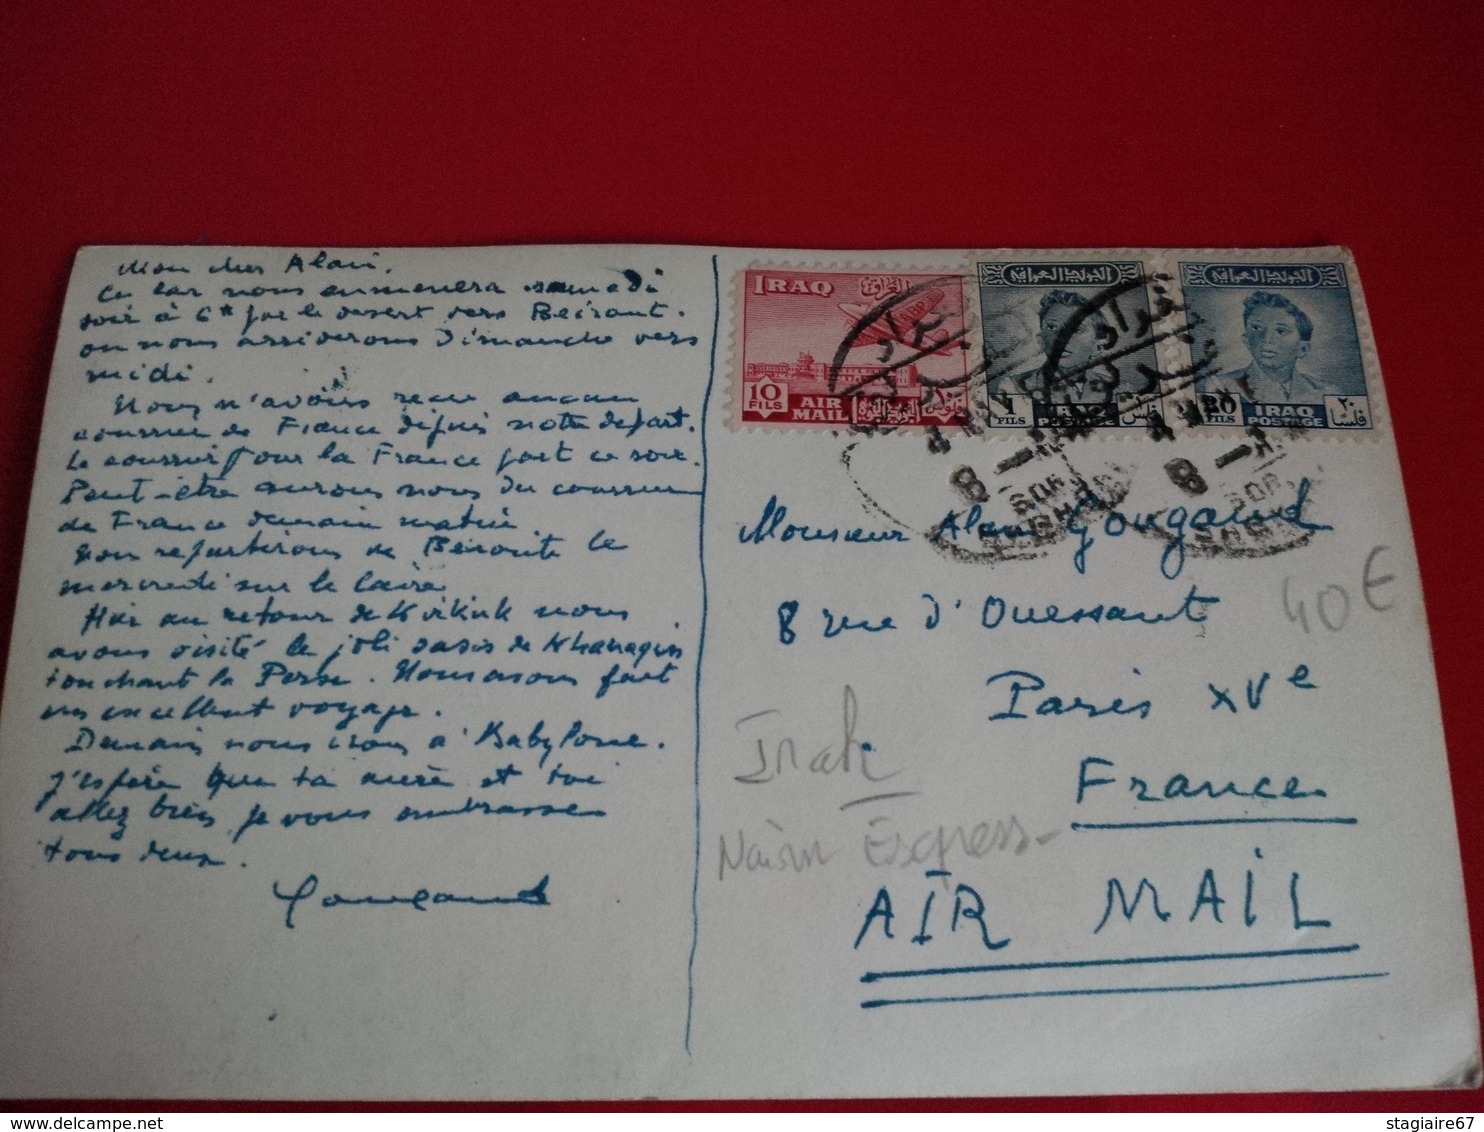 Mon cher Alain.
Ce car nous emmenera samedi
soir à 6h par le désert vers Beirout.
où nous arriverons Dimanche vers
midi.
Nous n'avons reçu aucun
courrier de France depuis notre départ.
Le courrier pour la France part ce soir.
Peut-être aurons nous du courrier
de France demain matin.
Nous repartirons de Beirouth le
mercredi sur le Caire.
Hier au retour de Kirkuk nous
avons visité le joli oasis de Khanaqin
touchant la Perse. Nous avons fait
un excellent voyage.
Demain nous irons à Babylone.
J'espère que ta mère et toi
allez bien, je vous embrasse
tous deux.
Gougaud
IRAQ
10
FILS
AIR
MAIL
البريد الجوي
فلوس
العراق
البريد العراقي
1
FILS
IRAQ
POSTAGE
فلس
البريد العراقي
20
FILS
IRAQ
POSTAGE
٢٠
فلسا
بغداد
بغداد
Monsieur Alain Gougaud
8 rue d'Ouessant
Paris XVe
France
AIR MAIL
40€
Irak
Nairn Express
stagiaire67